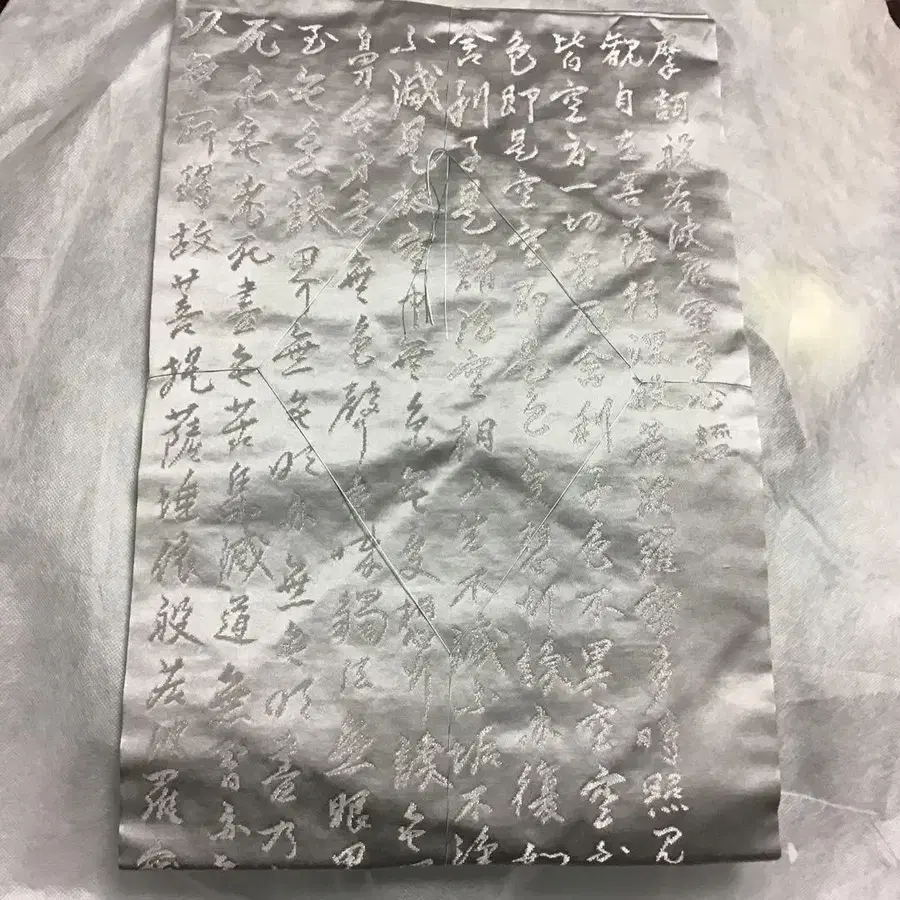 摩訶般若波羅蜜多心經
觀自在菩薩行深般若波羅蜜多時照見
皆空度一切苦厄舍利子色不異空空不
色即是空空即是色受想行識亦復如
舍利子是諸法空相不生不滅不垢不淨
不減是故空中無色無受想行識無
鼻舌身意無色聲香味觸法無眼界
至無意識界無無明亦無無明盡乃
死亦無老死盡無苦集滅道無智亦
以無所得故菩提薩埵依般若波羅